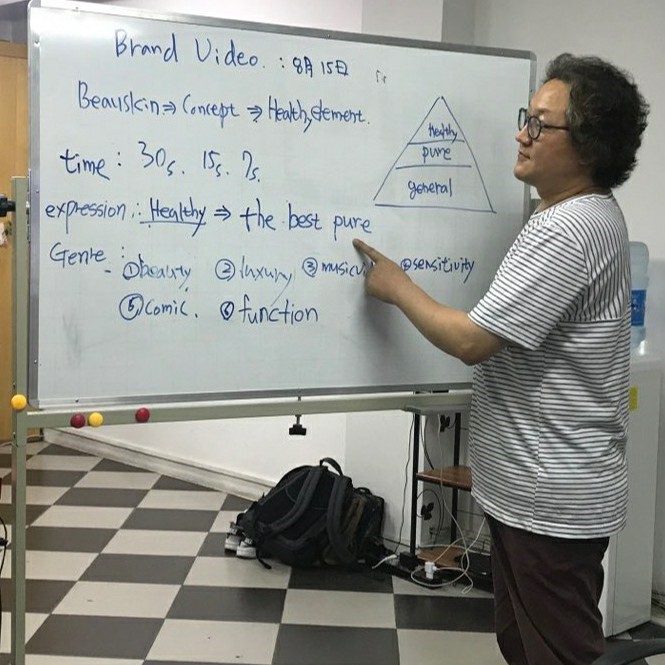 Brand Video. : 8月15日
Beauskin ⇒ Concept ⇒ Healthy element.
time : 30s. 15s. 7s.
expression : Healthy ⇒ the best pure
Genre : ① beauty ② luxury ③ music ④ sensitivity
⑤ comic. ⑥ function
Healthy
pure
general